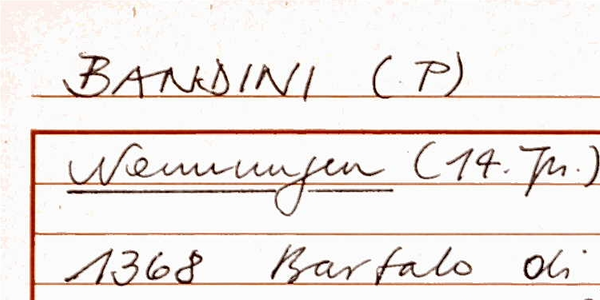 BANDINI (P)
Nennungen (14. Jh.)
1368 Bartalo di